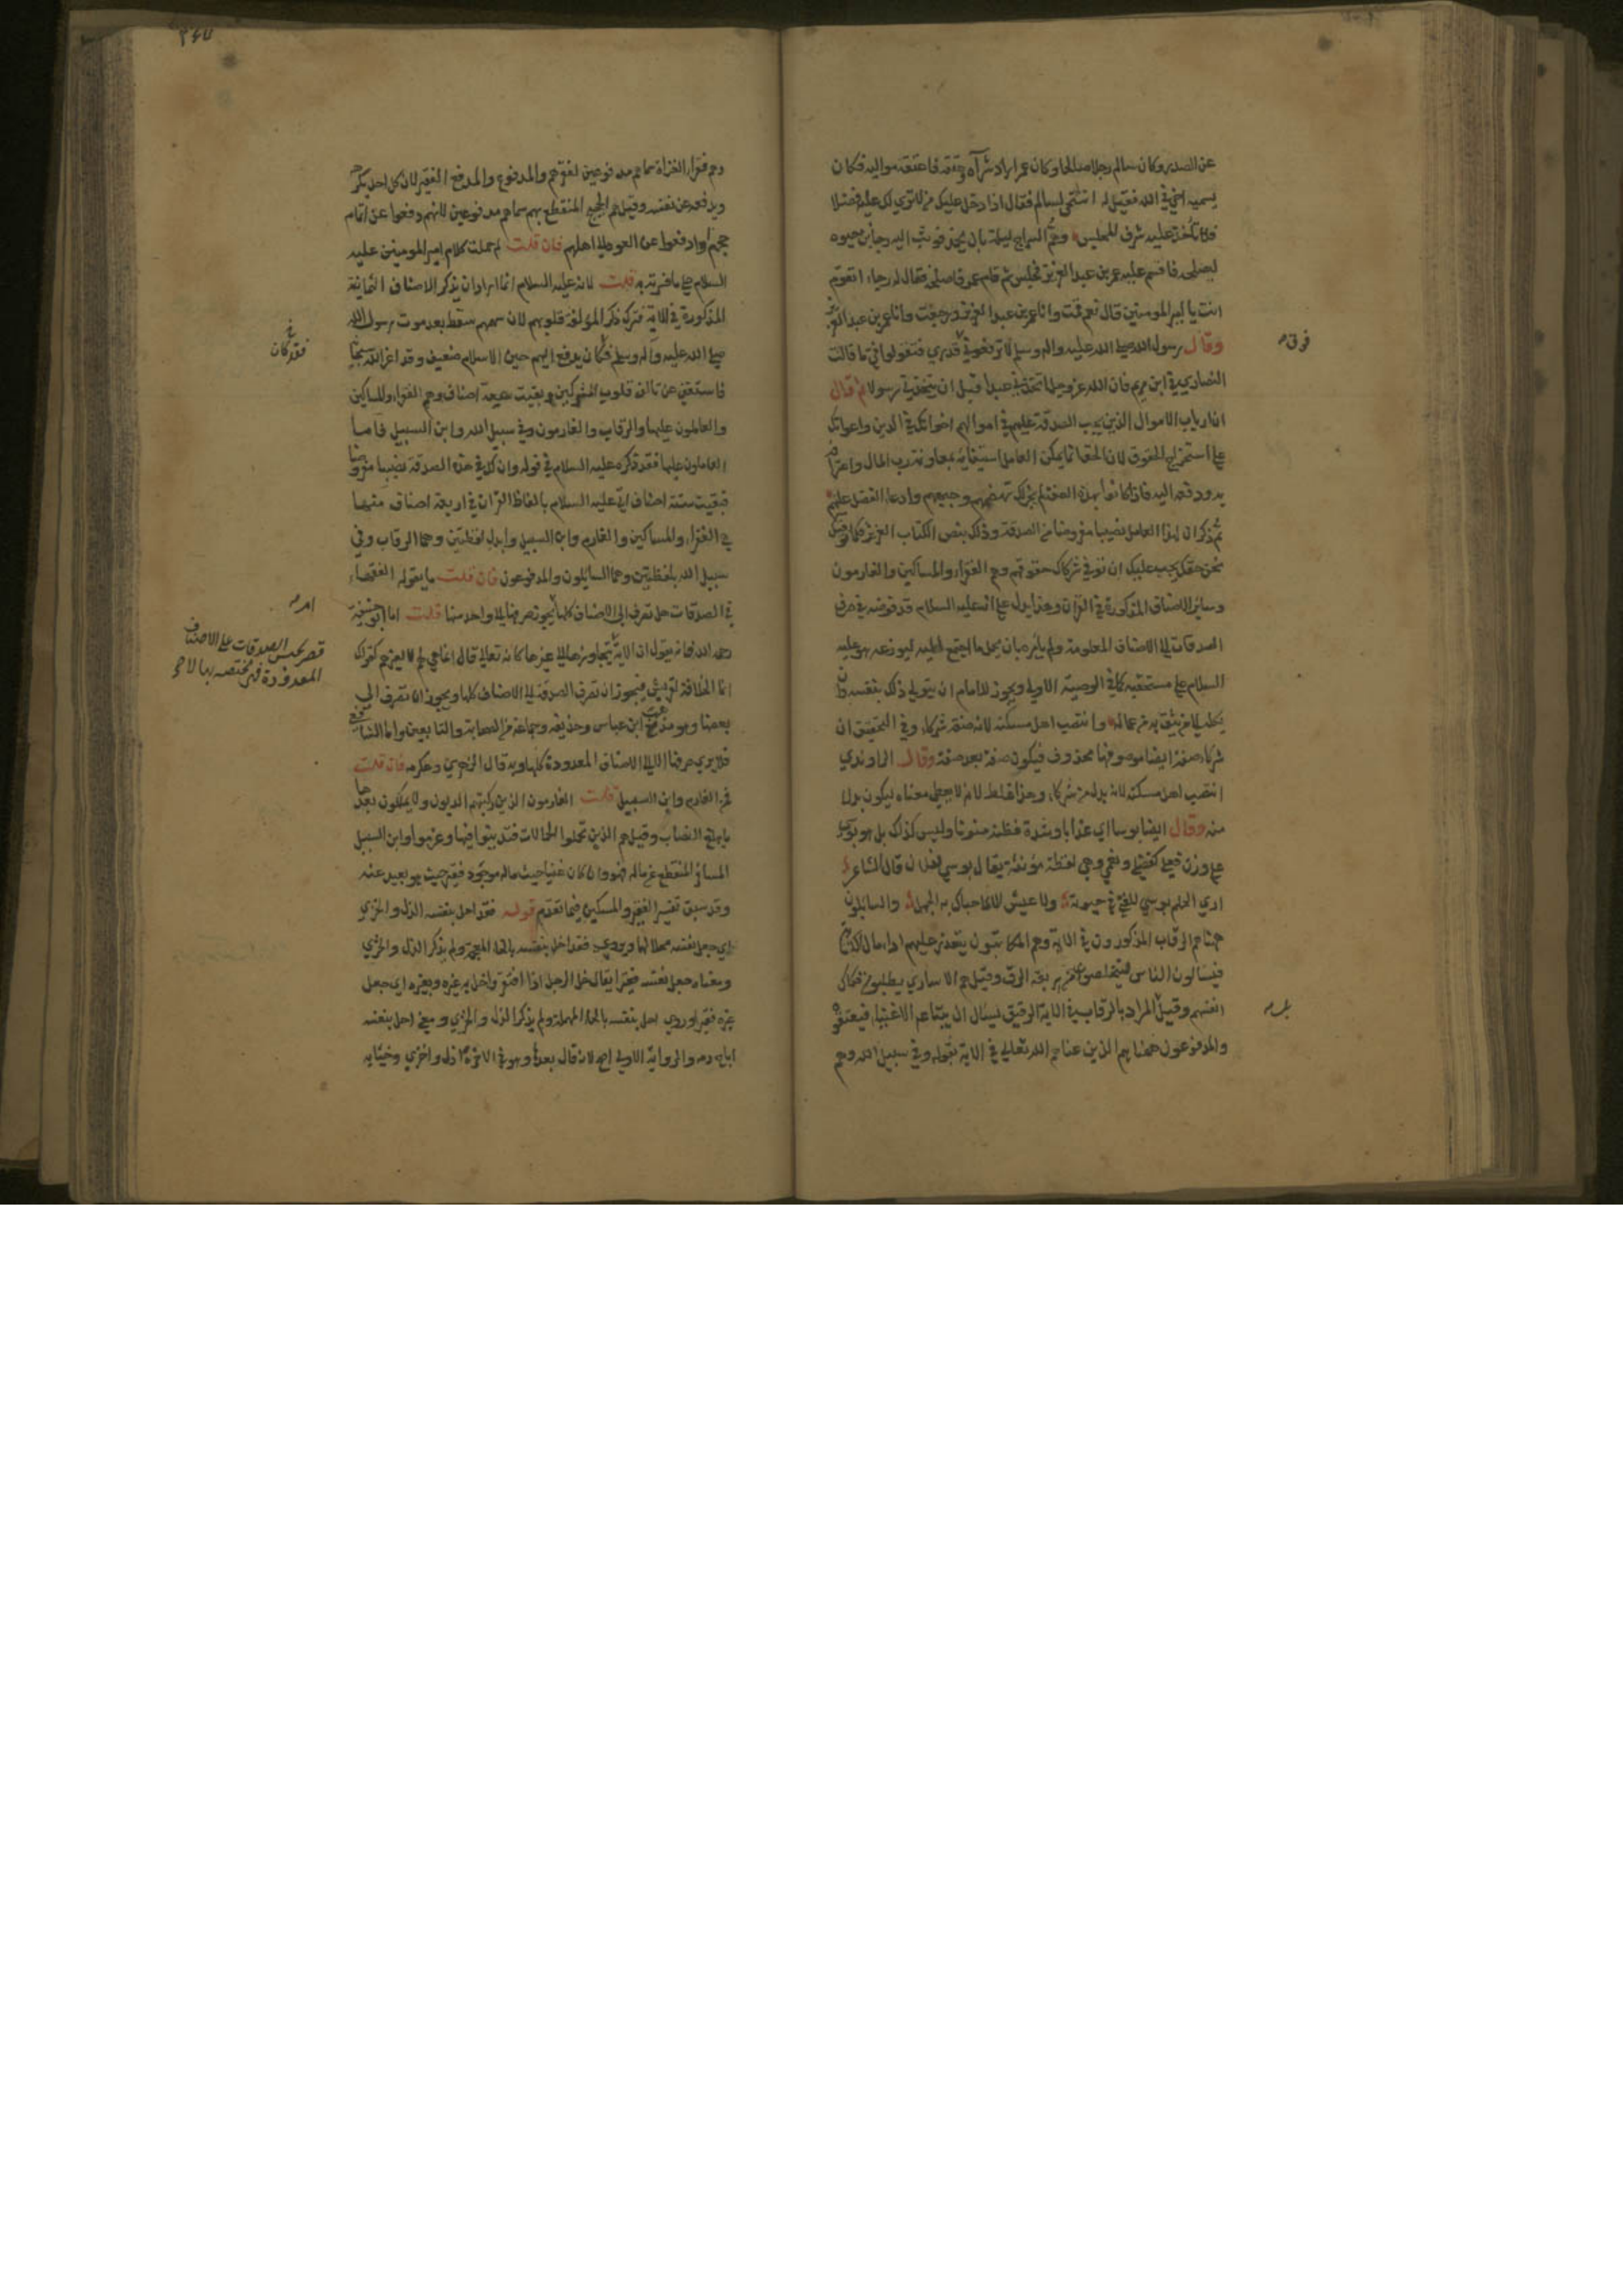 عن الصدر وكان سالم رجلا صالحا وكان عمر اراد شرآه وعتقه فاعتقه مواليه فكان
يسميه اخي في الله فقيل له اتنتمي لسالم فقال اذا دخل عليك من لا تري لك عليه فضلا
فلا تأخذ عليه شرف المجلس وهم السراج ليلة بان يخمد فوثب اليه رجا بن حيوه
ليصلحه فاقسم عليه عمر بن عبد العزيز فجلس ثم قام عمر فاصلحه فقال له رجاء اتقوم
انت يا امير المومنين قال نعم قمت وانا عمر بن عبد العزيز ورجعت وانا عمر بن عبد العزيز
وقال رسول الله صلي الله عليه واله وسلم لا ترفعوني قدري فتقولوا في ما قالت
النصاري في ابن مريم فان الله عز وجل اتخذني عبدا قبل ان يتخذني رسولا ثم قال
ان ارباب الاموال الذين يجب الصدقة عليهم في اموالهم اخوانك في الدين واعوانك
علي استخراج الحقوق لان الحق انما يمكن العامل استيفاؤه بمعاونة رب المال واعترافه
به ودفعه اليه فاذا كانوا بهذه الصفة لم يجز لك وادعاء الفضل عليهم
ثم ذكر ان لهذا العامل نصيبا مفروضا من الصدقة وذلك بنص الكتاب العزيز فكما نوفيك
نحن حقك يجب عليك ان توفي شركاك حقوقهم وهم الفقراء والمساكين والغارمون
وسائر الاصناف المذكورة في القران وهذا يدل علي انه عليه السلام قد فوضه في صرف
الصدقات الي الاصناف المعلومة ولم يامره بان يحمل ما اجتمع اليه ليوزعه هو عليه
السلام علي مستحقيه كما في الوصية الاولي ويجوز للامام ان يتولي ذلك بنفسه وان
يكله الي من يثق به من عماله وانتصب اهل مسكنة لانه صفة شركاء وفي التحقيق ان
شركاء صفة ايضا موصوفها محذوف فيكون صفة بعد صفة وقال الراوندي
انتصب اهل مسكنة لانه بدل من شركاء وهذا غلط لانه لا يعطي معناه ليكون بدلا
منه وقال ايضا بوسا اي عذابا وشدة فظنه منونا وليس كذلك بل هو بوسي
علي وزن فعلي كفضلي ونعمي وهي لفظة مؤنثة يقال بوسي لفلان قال الشاعر
اري الحلم بوسي للفتي في حيوته ولا عيش الا ما حباك به الجهل والسائلون
ههنا هم الرقاب المذكورون في الاية وهم المكاتبون يتعذر عليهم اداء مال الكتابة
فيسالون الناس ليتخلصوا من ربقة الرق وقيل هم الاساري يطلبون فكاك
انفسهم وقيل المراد بالرقاب في الاية الرقيق يسال ان يبتاعه الاغنياء فيعتقوه
والمدفوعون ههنا هم الذين عناهم الله تعالي في الاية بقوله وفي سبيل الله وهم
فوق
وهم فقراء الغزاة سماهم مدفوعين لفقرهم والمدفوع والمدفع الفقير لان كل احد يكرهه
ويدفعه عن نفسه وقيل هم الحجيج المنقطع بهم سماهم مدفوعين لانهم دفعوا عن اتمام
حجهم او دفعوا عن العود الي اهلهم فان قلت لم حملت كلام امير المومنين عليه
السلام علي ما فسرته به قلت لانه عليه السلام انما اراد ان يذكر الاصناف الثمانية
المذكورة في الاية فترك ذكر المؤلفة قلوبهم لان سهمهم سقط بعد موت رسول الله
صلي الله عليه واله وسلم فكان يدفع اليهم حين الاسلام ضعيف وقد اعز الله سبحانه
فاستغني عن تالف قلوب المشركين وبقيت سبعة اصناف وهم الفقراء والمساكين
والعاملون عليها والرقاب والغارمون وفي سبيل الله وابن السبيل فاما
العاملون عليها فقد ذكره عليه السلام في قوله وان لك في هذه الصدقة نصيبا مفروضا
فبقيت ستة اصناف اتي عليه السلام بالفاظ القران في اربعة اصناف منها
هي الفقراء والمساكين والغارم وابن السبيل وابدل لفظتين وهما الرقاب وفي
سبيل الله بلفظتين وهما السائلون والمدفوعون فان قلت ما يقوله الفقهاء
في الصدقات هل تصرف الي الاصناف كلها ام يجوز صرفها الي واحد منها قلت اما ابو حنيفة
رحمه الله فانه يقول ان الاية لا يتجاوزها الي غيرها كانه تعالي قال انما هي لهم لا لغيرهم كقولك
انما الخلافة لقريش فيجوز ان تصرف الصدقة الي الاصناف كلها ويجوز ان تصرف الي
بعضها وهو مذهب ابن عباس وحذيفه وجماعة من الصحابة والتابعين واما الشافعي
فلا يري صرفها الا الي الاصناف المعدودة كلها وبه قال الزهري وعكرمه فان قلت
فمن الغارم وابن السبيل قلت الغارمون الذين ركبتهم الديون ولا يملكون بعدها
ما يبلغ النصاب وقيل هم الذين تحملوا الحمالات فتدينوا فيها وغرموا وابن السبيل
المسافر المنقطع عن ماله فهو وان كان غنيا حيث ماله موجود فقير حيث هو بعيد عنه
وقد سبق تفسير الفقير والمسكين فيما تقدم قوله فقد احل بنفسه الذل والخزي
اي جعل نفسه محلا لهما وروي فقد اخل بنفسه بالخاء المعجمة ولم يذكر الذل والخزي
ومعناه جعل نفسه فقيرا يقال خل الرجل اذا افتقر واخل به غيره وبغيره اي جعل
غيره فقيرا وروي احل بنفسه بالحاء المهملة ولم يذكر الذل والخزي ومعني احل بنفسه
اباح دمه والرواية الاولي اصح لانه قال بعدها وهو في الاخرة اذل واخزي وخيانة
فقد كان
قصر جنس الصدقات علي الاصناف
المعدودة فهي مختصه بها لا